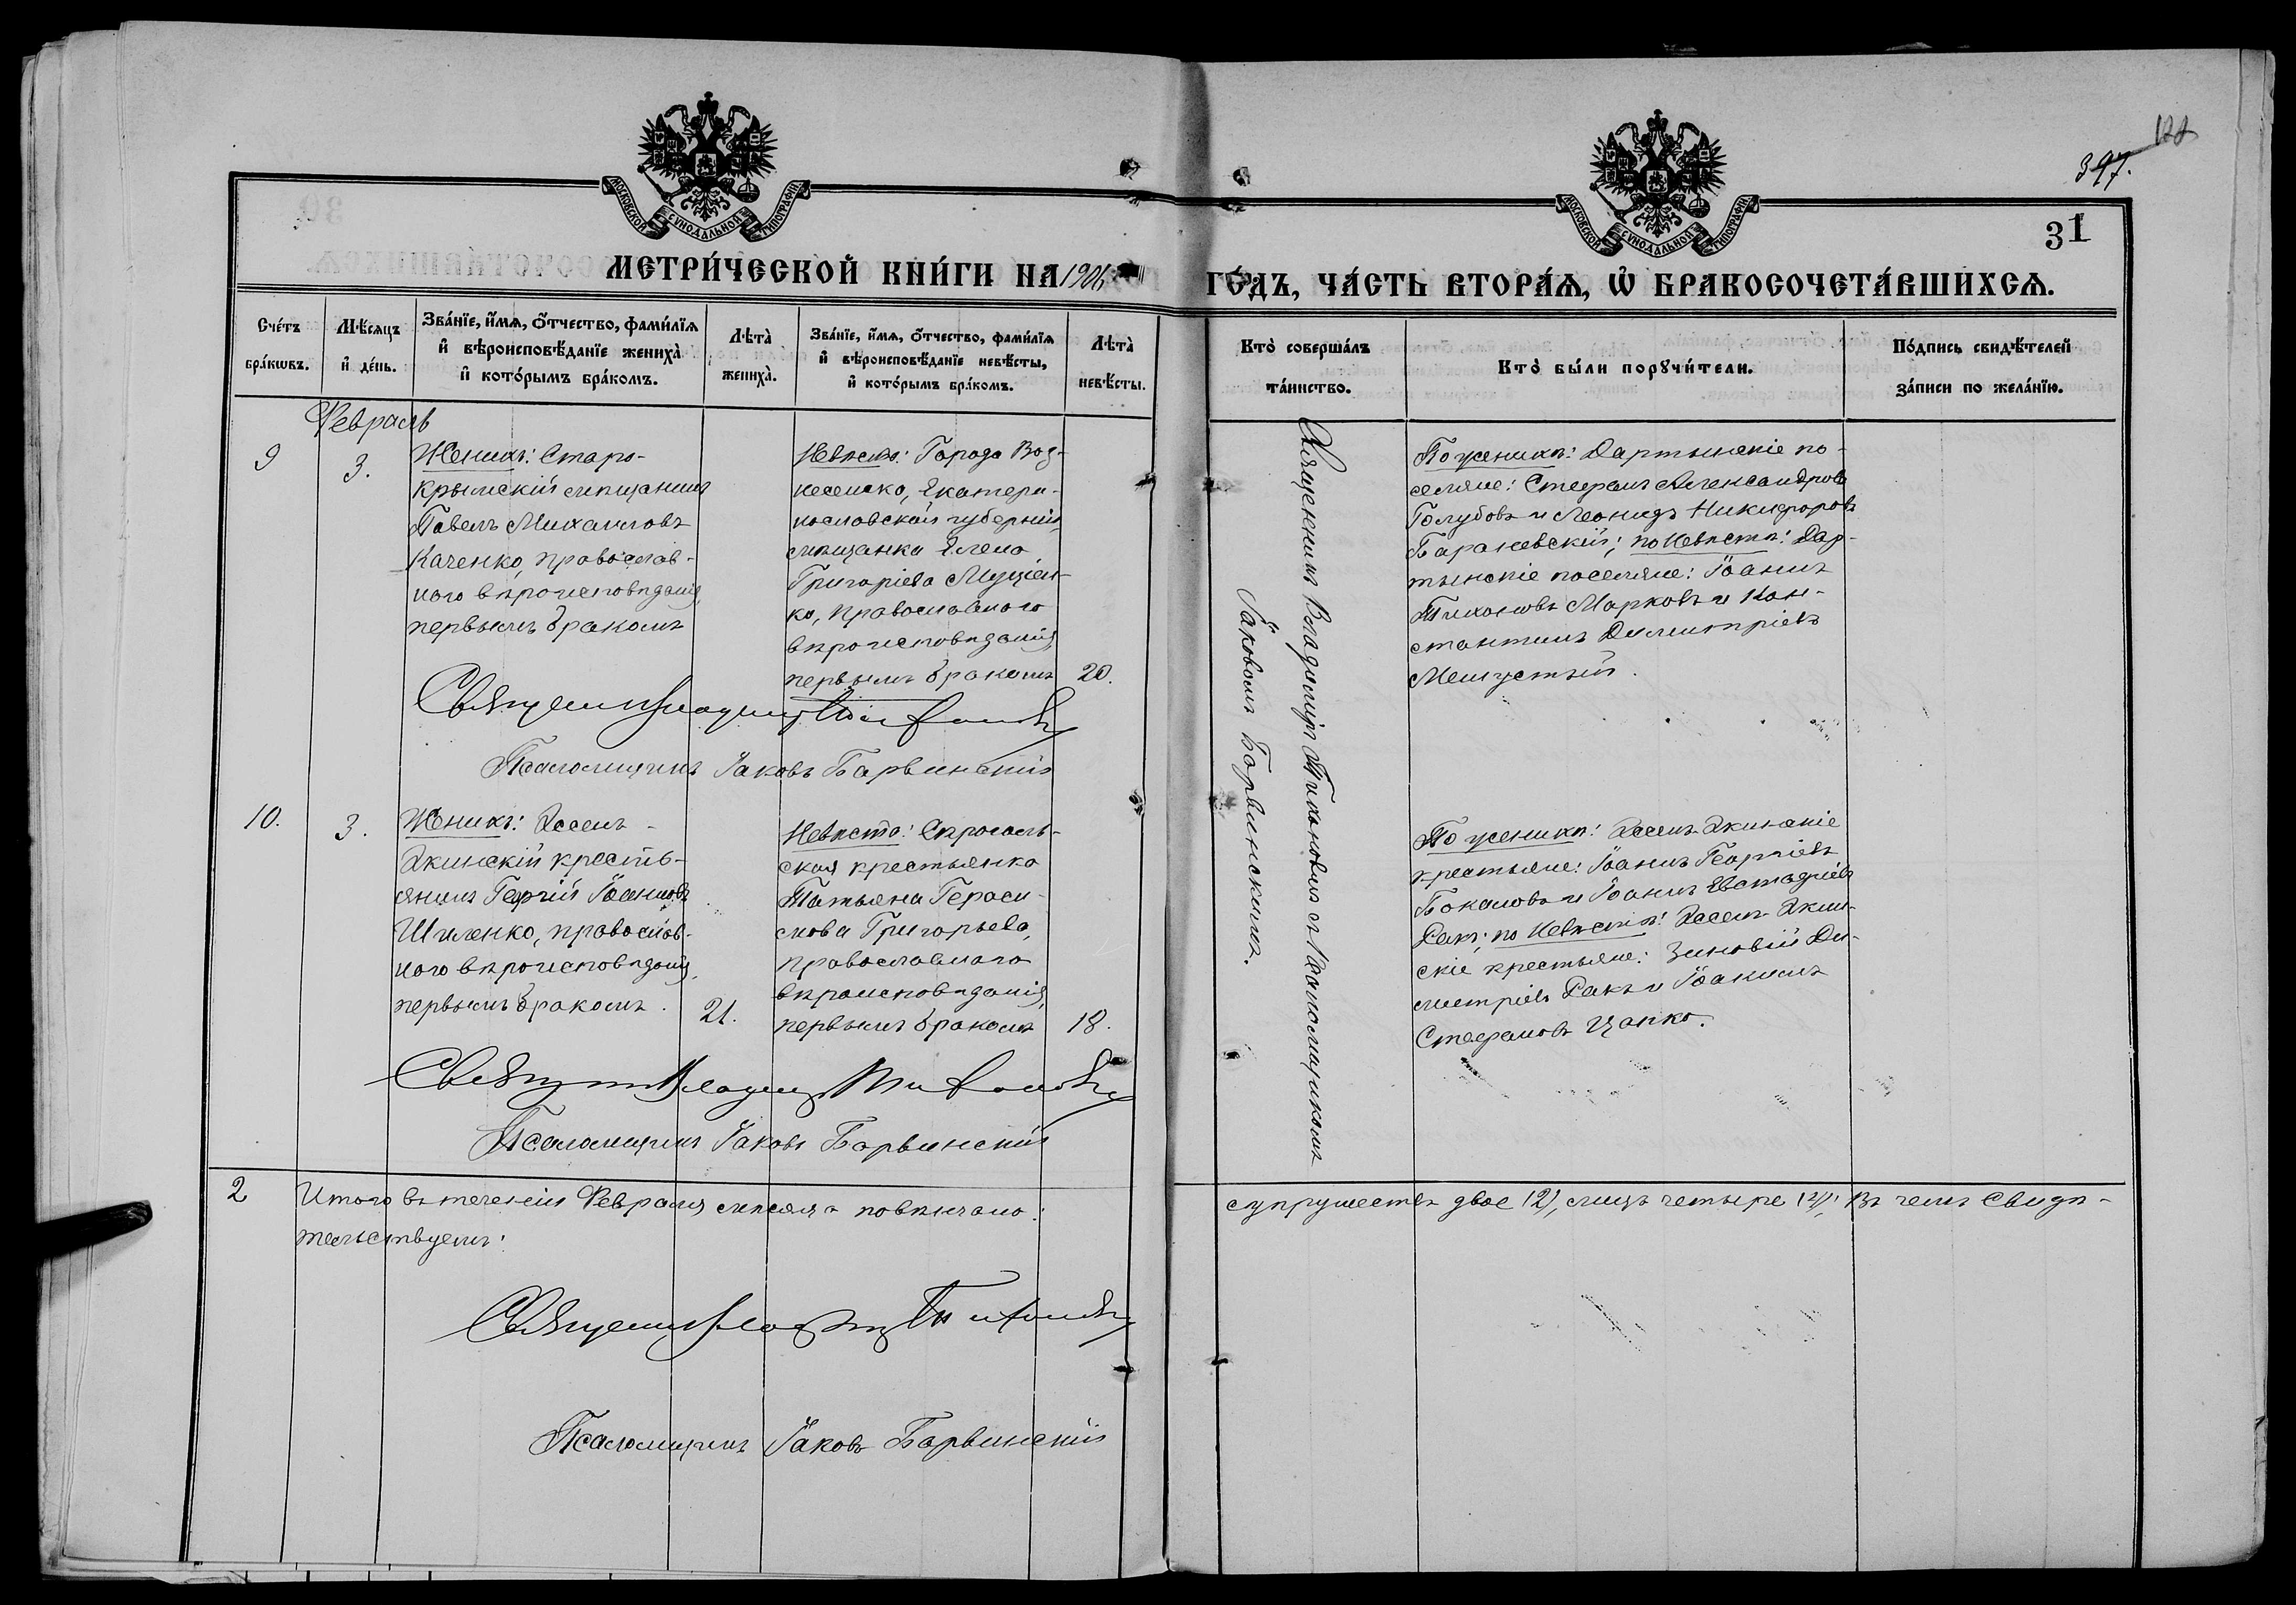 397.
31
МОСКОВСКОЙ СѴНОДАЛЬНОЙ ТИПОГРАФІИ
МОСКОВСКОЙ СѴНОДАЛЬНОЙ ТИПОГРАФІИ
МЕТРИ́ЧЕСКОЙ КНИ́ГИ НА 1906
ГО́ДЪ, ЧА́СТЬ ВТОРА́Ѧ, Ѡ БРАКОСОЧЕТА́ВШИХСѦ.
Сче́тъ
бра́кѡвъ.
Мѣ́сѧцъ
и҆ де́нь.
Зва́нїе, и҆́мѧ, ѻ҆́тчество, фами́лїѧ
и҆ вѣроисповѣ́данїе жениха̀
и҆ кото́рымъ бра́комъ.
Лѣта̀
жениха̀.
Зва́нїе, и҆́мѧ, ѻ҆́тчество, фами́лїѧ
и҆ вѣроисповѣ́данїе невѣ́сты,
и҆ кото́рымъ бра́комъ.
Лѣта̀
невѣ́сты.
Кто̀ соверша́лъ
та́инство.
Кто̀ бы́ли порꙋчи́тели.
По́дпись свидѣ́телей
за́писи по жела́нїю.
Февраль
9
3.
Женихъ: Старо-
крымскій мѣщанинъ
Павелъ Михаиловъ
Каченко, православ-
наго вѣроисповѣданія,
первымъ бракомъ
Невѣста: Города Воз-
несенска, Екатери-
нославской губерніи,
мѣщанка Елена
Григоріева Муціен-
ко, православнаго
вѣроисповѣданія,
первымъ бракомъ
20.
Священникъ Владиміръ Тихоновичъ
Псаломщикъ Іаковъ Барвинскій
Священникъ Владиміръ Тихоновичъ съ псаломщикомъ
Іаковомъ Барвинскимъ.
По женихѣ: Дартынскіе по-
селяне: Стефанъ Александровъ
Голубовъ и Леонидъ Никифоровъ
Барановскій; по невѣстѣ: Дар-
тынскіе поселяне: Іоаннъ
Тихоновъ Марковъ и Кон-
стантинъ Димитріевъ
10.
3.
Женихъ: Ассенъ-
Акинскій кресть-
янинъ Георгій Іоанновъ
Шиленко, православ-
наго вѣроисповѣданія,
первымъ бракомъ.
21.
Невѣста:
ская крестьянка
Татьяна Гераси-
мова Григорьева,
православнаго
вѣроисповѣданія,
первымъ бракомъ
18.
По женихѣ: Ассенъ-Акинскіе
крестьяне: Іоаннъ Георгіевъ
Бокаловъ и Іоаннъ Евстафіевъ
Ракъ; по невѣстѣ: Ассенъ-Акин-
скіе крестьяне: Зиновій Ди-
митріевъ Ракъ и Іоаннъ
Стефановъ Цапко.
Священникъ Владиміръ Тихоновичъ
Псаломщикъ Іаковъ Барвинскій
2
Итого въ теченіи Февраля мѣсяца повѣнчано:
супружествъ двое (2), лицъ четыре (4). Въ чемъ свидѣ-
тельствуемъ:
Священникъ Владиміръ Тихоновичъ
Псаломщикъ Іаковъ Барвинскій